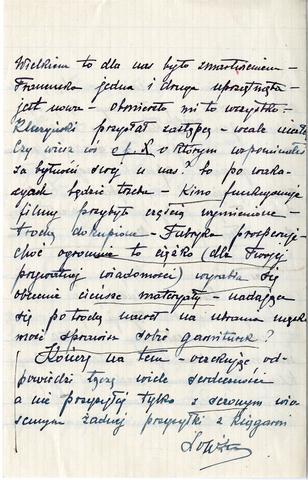 Wielkiem to dla nas było zmartwieniem –
Franciszka jedna i druga uprzątnięta –
jest nowa – obmierzło mi to wszystko.
przysłał zastępcę – wcale
Czy wiesz co o f. X o którym wspominałeś
za bytności swej u nas? to po waka-
cyach będzie trochę – Kino funkcjonuje
filmy przybyłe częścią wymienione –
trochę dokupione – Fabryka prosperuje
choć ogromnie to ciężko (dla Twojej
prywatnej wiadomości) wyrabia się
obecnie cieńsze materyały – nadające
się po trochę nawet na ubrania męzk.
może sprawisz sobie garniturek?
Kończę na tem – oczekując od-
powiedzi łączę wiele serdeczności
a nie przysyłaj tylko z
żadnej przesyłki z księgarni